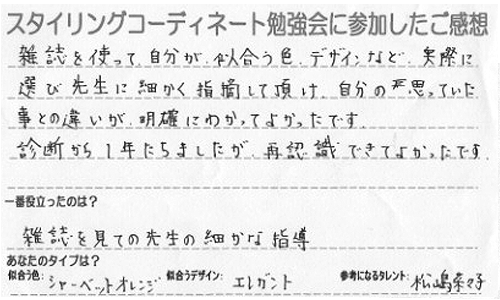 スタイリングコーディネート勉強会に参加したご感想
雑誌を使って、自分が、似合う色、デザインなど、実際に
選び先生に細かく指摘して頂け、自分の思っていた
事との違いが、明確にわかってよかったです。
診断から1年たちましたが、再認識できてよかったです。
一番役立ったのは?
雑誌を見ての先生の細かな指導
あなたのタイプは?
似合う色: シャーベットオレンジ 似合うデザイン: エレガント 参考になるタレント: 松嶋菜々子